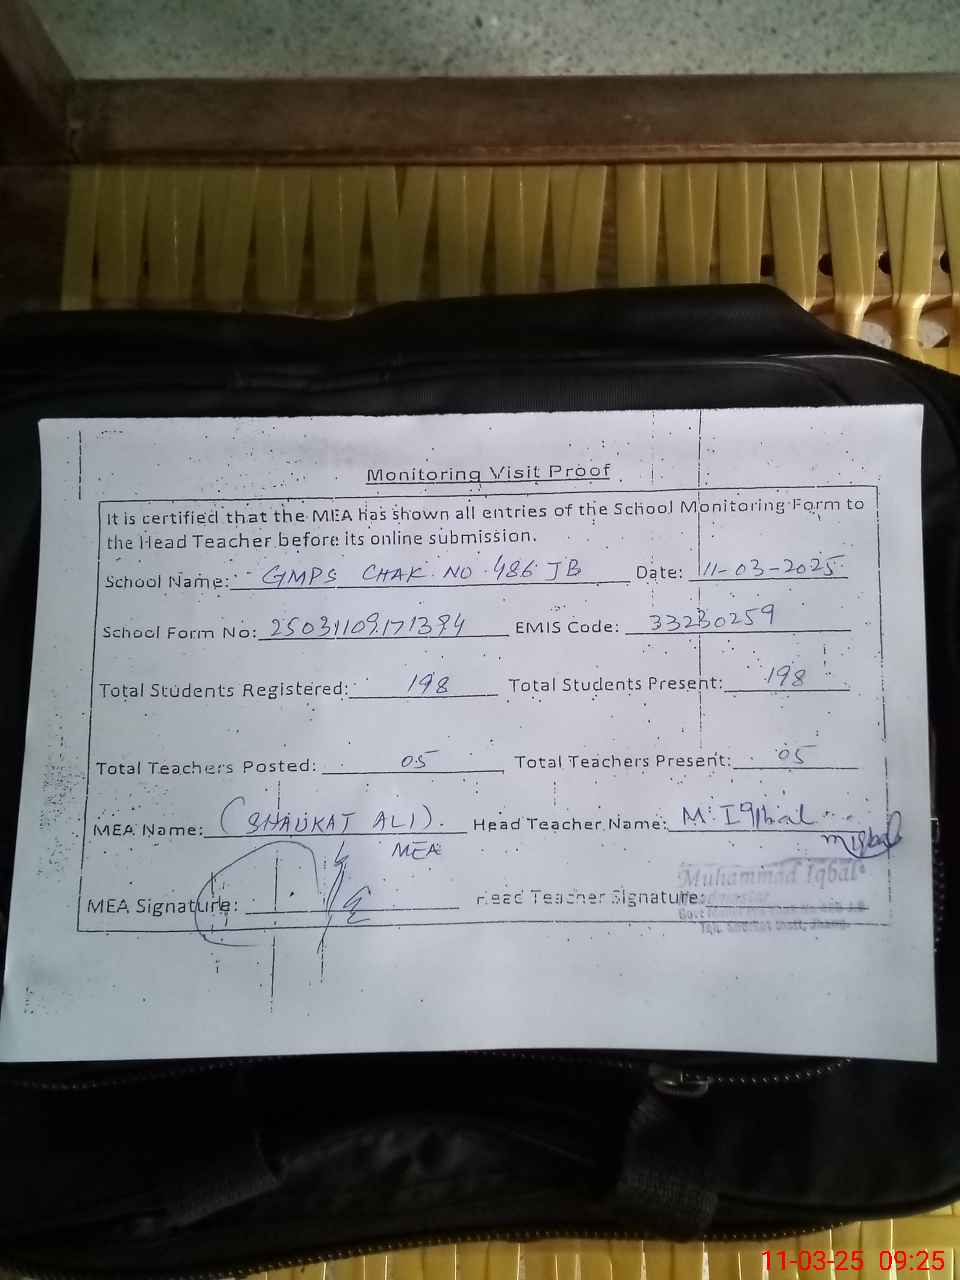 Monitoring Visit Proof
It is certified that the MEA has shown all entries of the School Monitoring Form to
the Head Teacher before its online submission.
School Name: GMPS CHAK NO 486 JB Date: 11-03-2025
School Form No: EMIS Code: 33230259
Total Students Registered: 198 Total Students Present: 198
Total Teachers Posted: 05 Total Teachers Present: 05
MEA Name: (SHAUKAT ALI). Head Teacher Name: M. Iqbal
MEA miqbal
Muhammad Iqbal
MEA Signature: Head Teacher Signature:
11-03-25 09:25